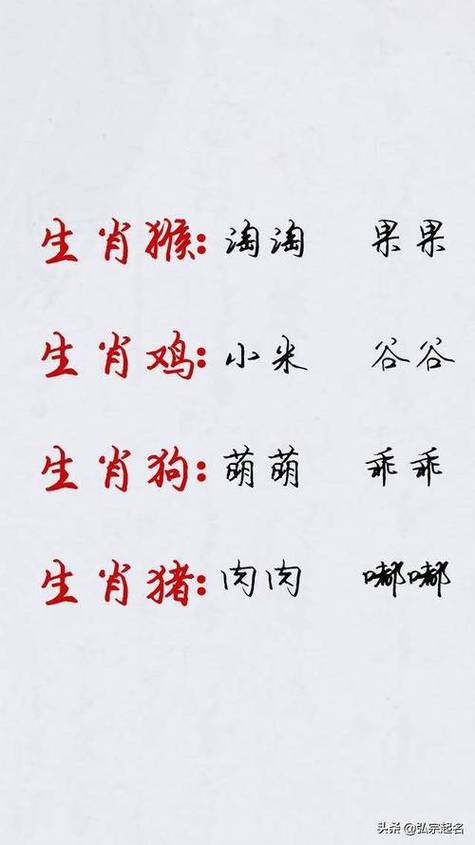 生肖猴:淘淘 果果
生肖鸡:小米 谷谷
生肖狗:萌萌 乖乖
生肖猪:肉肉 嘟嘟
头条 @弘宗起名